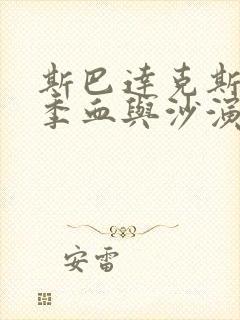 斯巴達克斯
季血與沙演
安雷